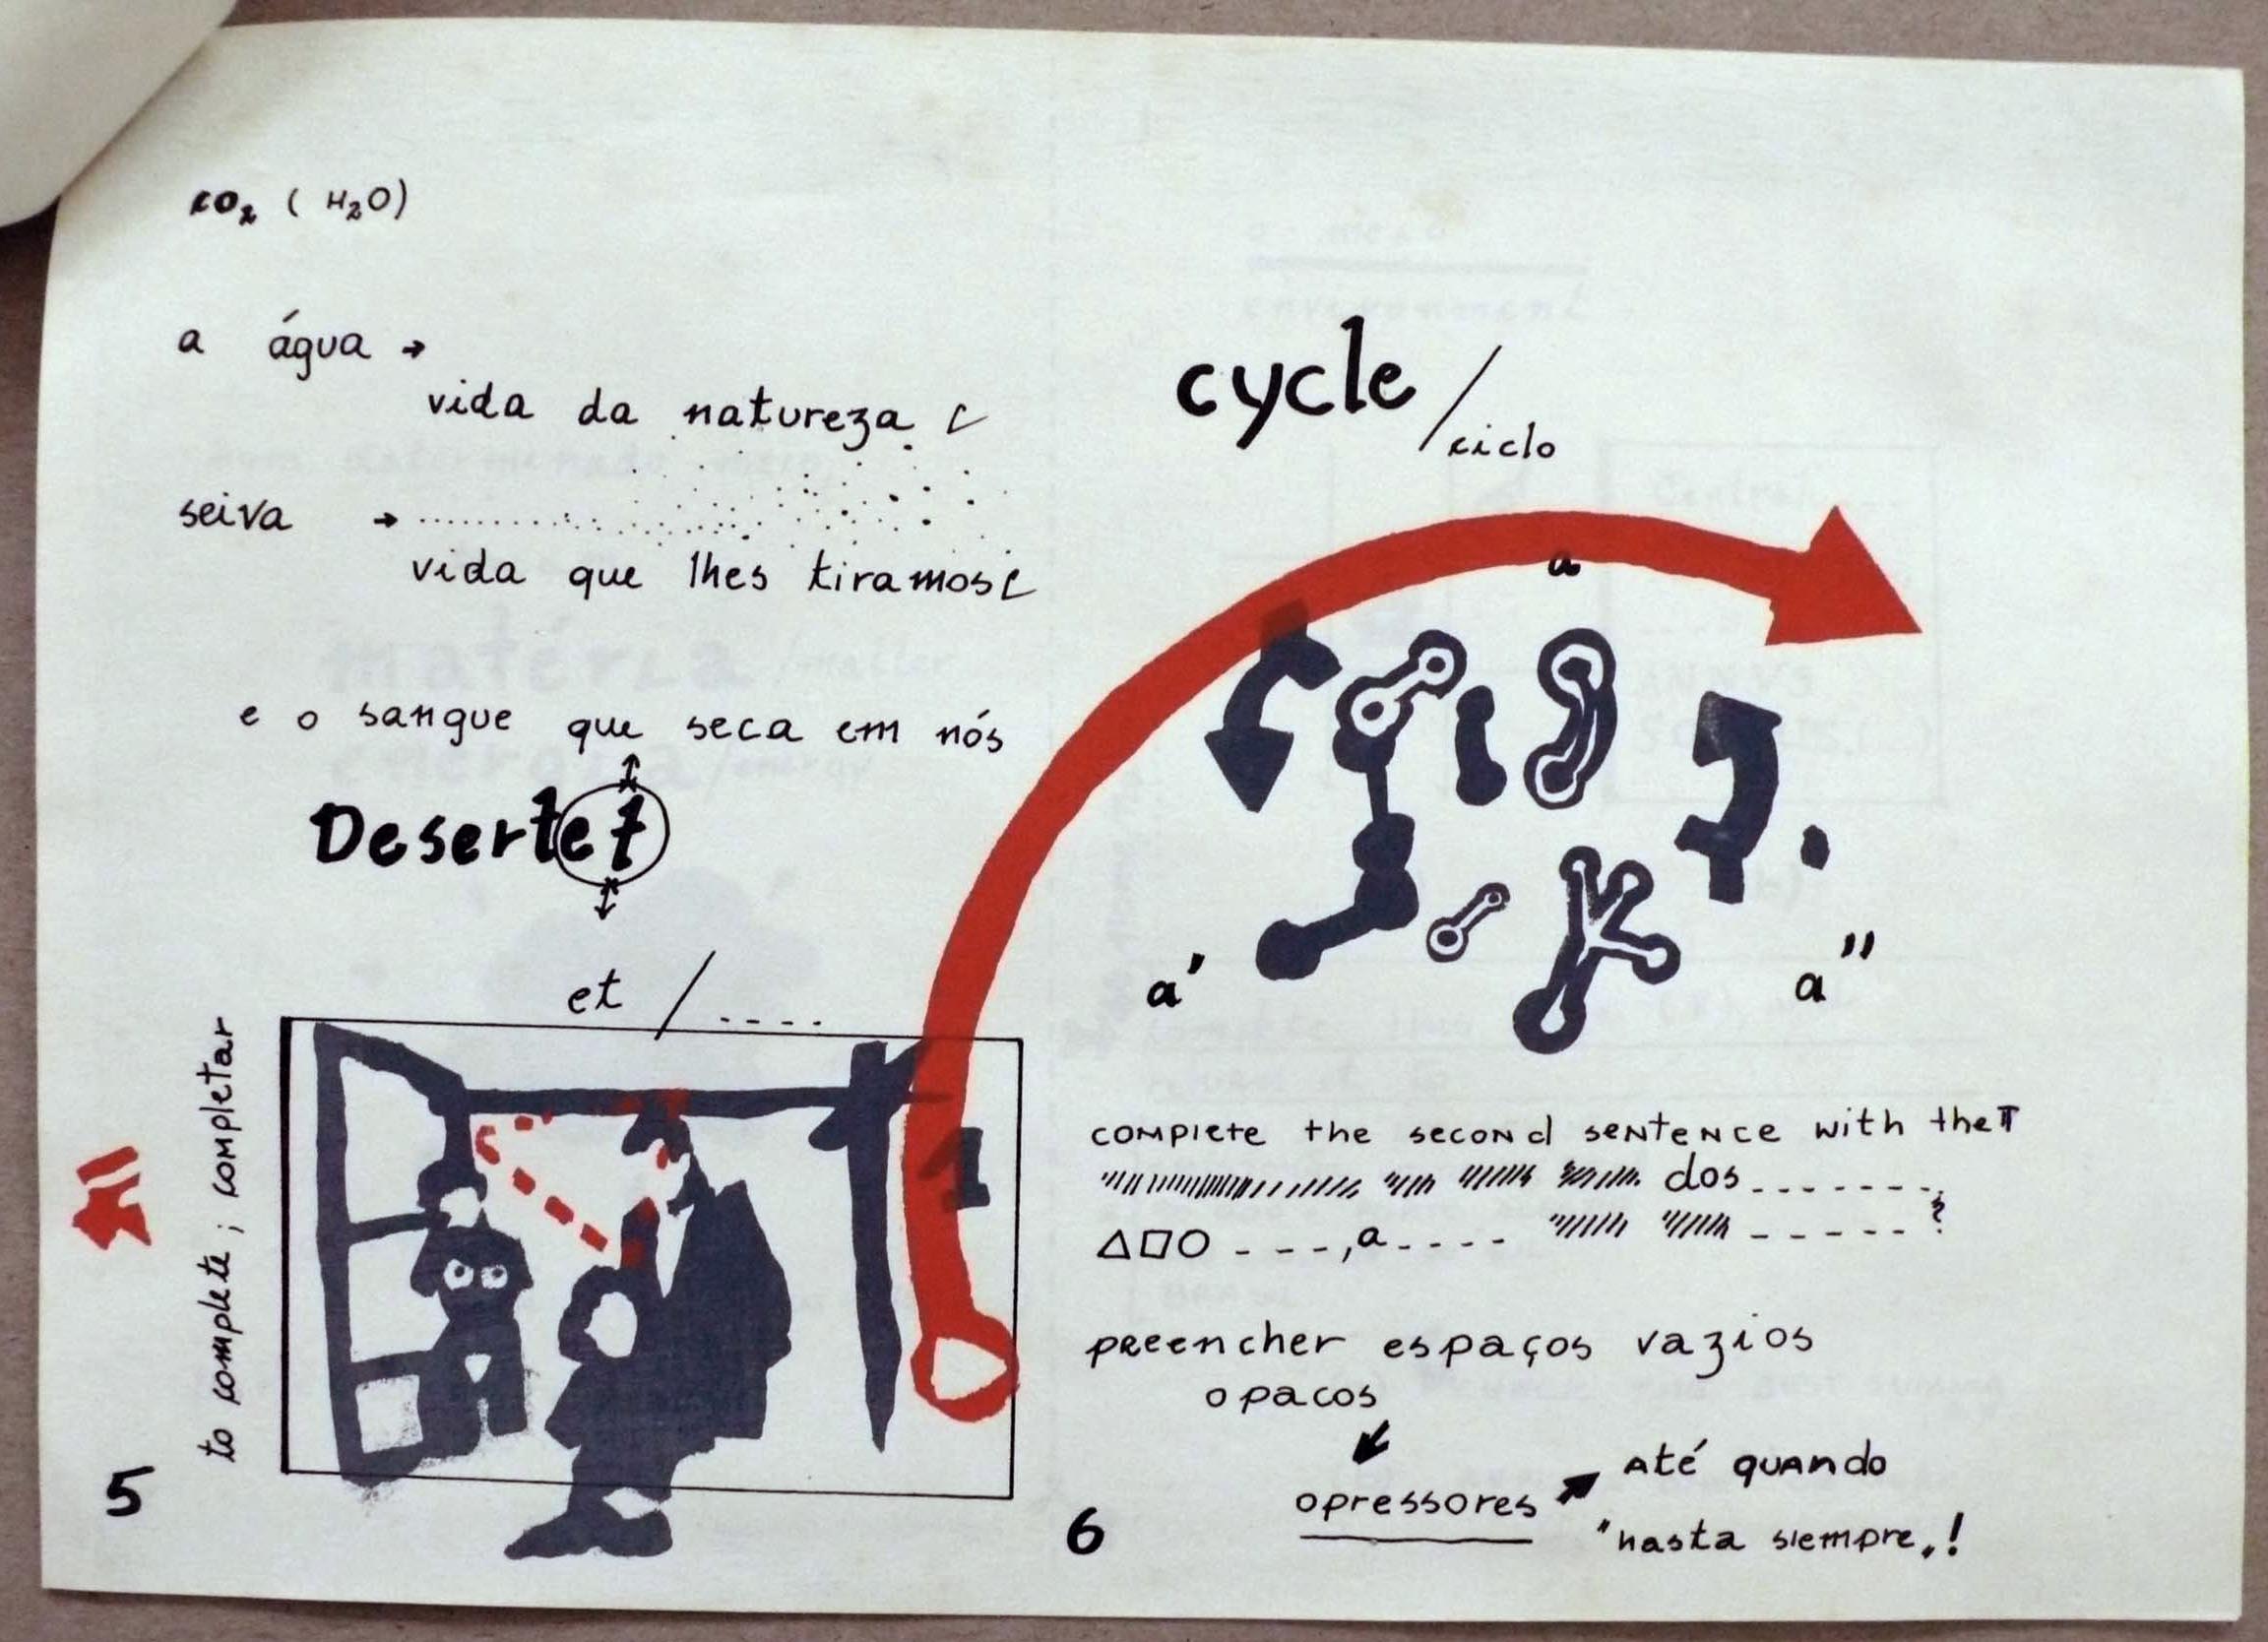 CO₂ ( H₂O)
a água →
vida da natureza
seiva →
vida que lhes tiramos
e o sangue que seca em nós
Desertet
et / ....
to complete ; completar
1
5
cycle / ciclo
a
a'
a"
complete the second sentence with the
dos - - - - - - -
- - - -, a - - - -
preencher espaços vazios
opacos
opressores
Até quando
"hasta siempre"!
6